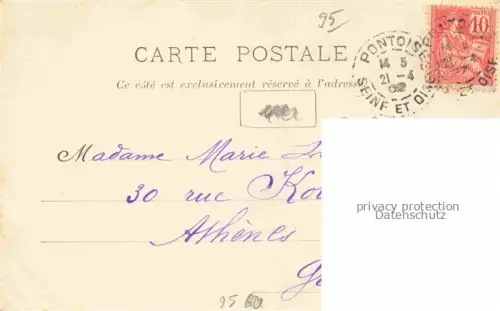 95
CARTE POSTALE
Ce côté est exclusivement réservé à l'adresse
10
PONTOISE
14 5
21 -4
02
SEINE ET OISE
Madame Marie
30 rue
Athènes
privacy protection
Datenschutz
95